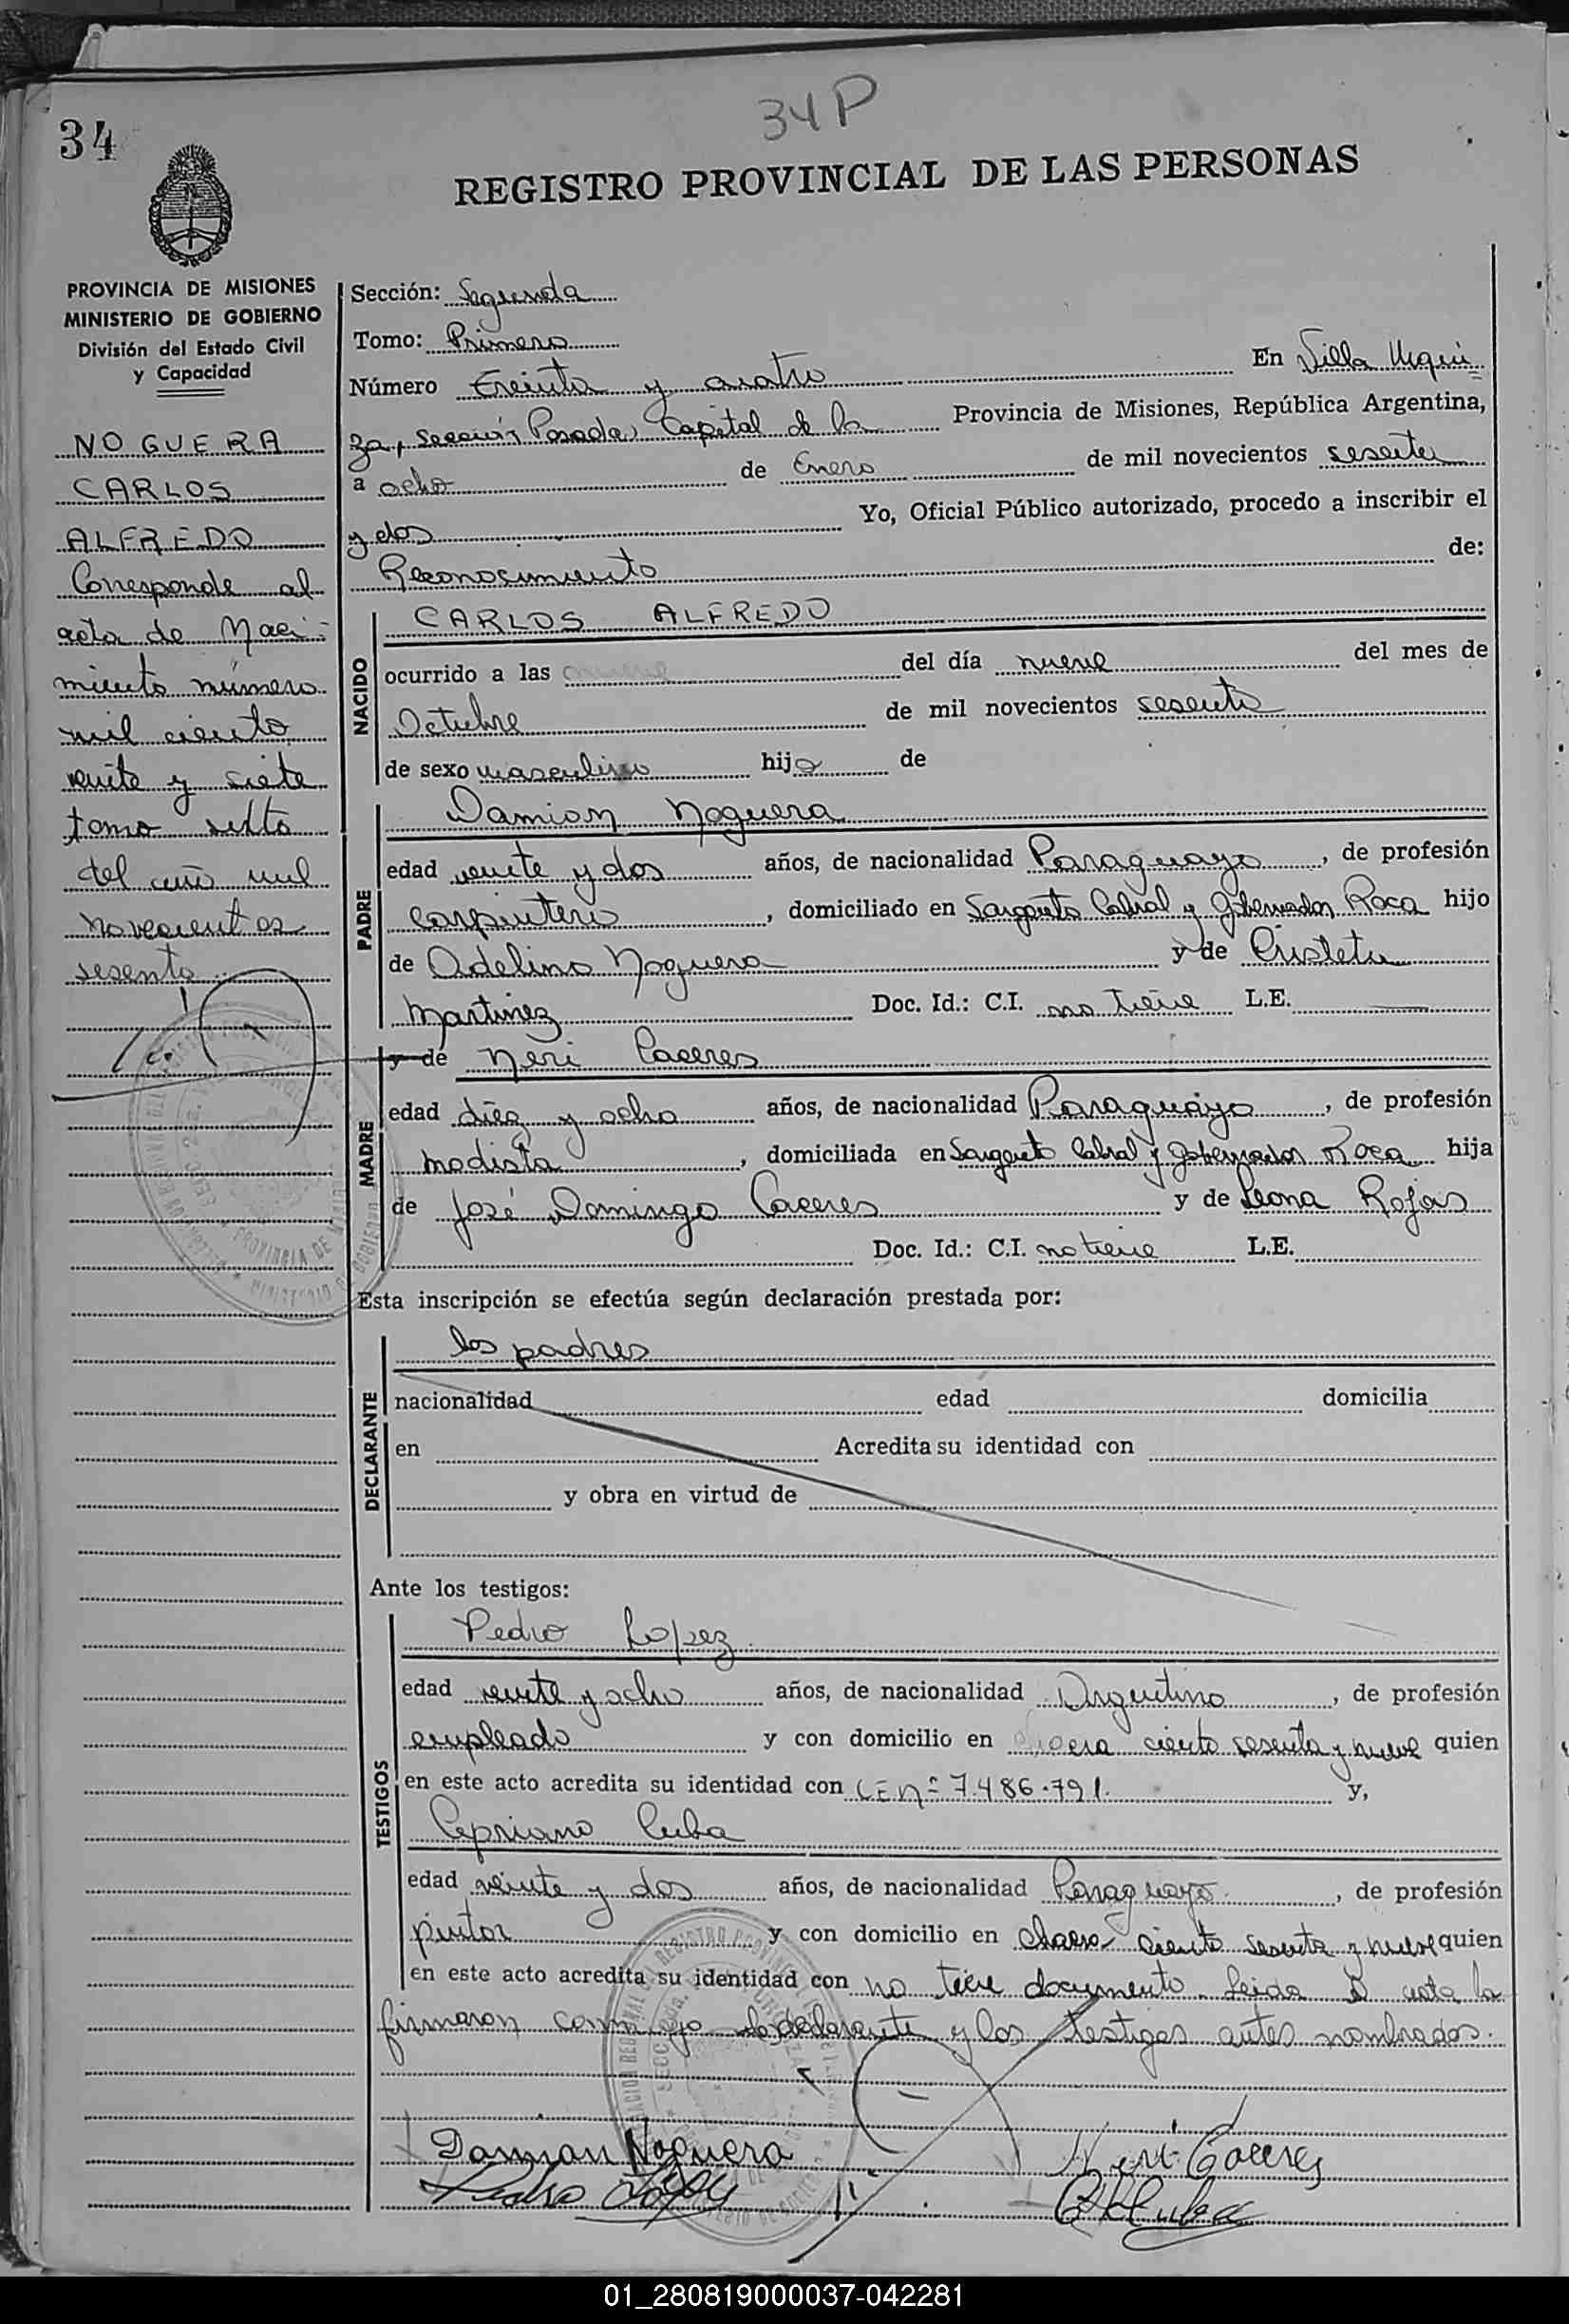 34
34P
REGISTRO PROVINCIAL DE LAS PERSONAS
PROVINCIA DE MISIONES
MINISTERIO DE GOBIERNO
División del Estado Civil
y Capacidad
NOGUERA
CARLOS
ALFREDO
Corresponde al
acta de Naci-
miento número
mil ciento
veinte y siete
tomo sexto
del año mil
novecientos
sesenta
Sección: Segunda
Tomo: Primero
Número Treinta y cuatro En Villa Urqui=
za, Sección Posadas Capital de la Provincia de Misiones, República Argentina,
a ocho de Enero de mil novecientos sesenta
y dos Yo, Oficial Público autorizado, procedo a inscribir el
Reconocimiento de:
NACIDO
CARLOS ALFREDO
ocurrido a las del día nueve del mes de
Octubre de mil novecientos sesenta
de sexo masculino hijo de
PADRE
Damian Noguera
edad veinte y dos años, de nacionalidad Paraguaya, de profesión
carpintero, domiciliado en Sargento Cabral y Gobernador Roca hijo
de Adelino Noguera y de
Martinez Doc. Id.: C.I. no tiene L.E.
MADRE
y de Neri Caceres
edad diez y ocho años, de nacionalidad Paraguaya, de profesión
modista, domiciliada en Sargento Cabral y Gobernador Roca hija
de José Domingo Caceres y de Leona Rojas
Doc. Id.: C.I. no tiene L.E.
Esta inscripción se efectúa según declaración prestada por:
DECLARANTE
los padres
nacionalidad edad domicilia
en Acredita su identidad con
y obra en virtud de
Ante los testigos:
TESTIGOS
Pedro Lopez
edad veinte y ocho años, de nacionalidad Argentino, de profesión
empleado y con domicilio en ciento sesenta y nueve quien
en este acto acredita su identidad con L E nº 7.486.791. y,
Cipriano Cuba
edad veinte y dos años, de nacionalidad Paraguayo, de profesión
pintor y con domicilio en chacra ciento sesenta y nueve quien
en este acto acredita su identidad con no tiene documento. Leida acta la
firmaron conmigo declarante y los testigos antes nombrados.
Damian Noguera
Neri Caceres
Pedro López
Cuba
01_280819000037-042281